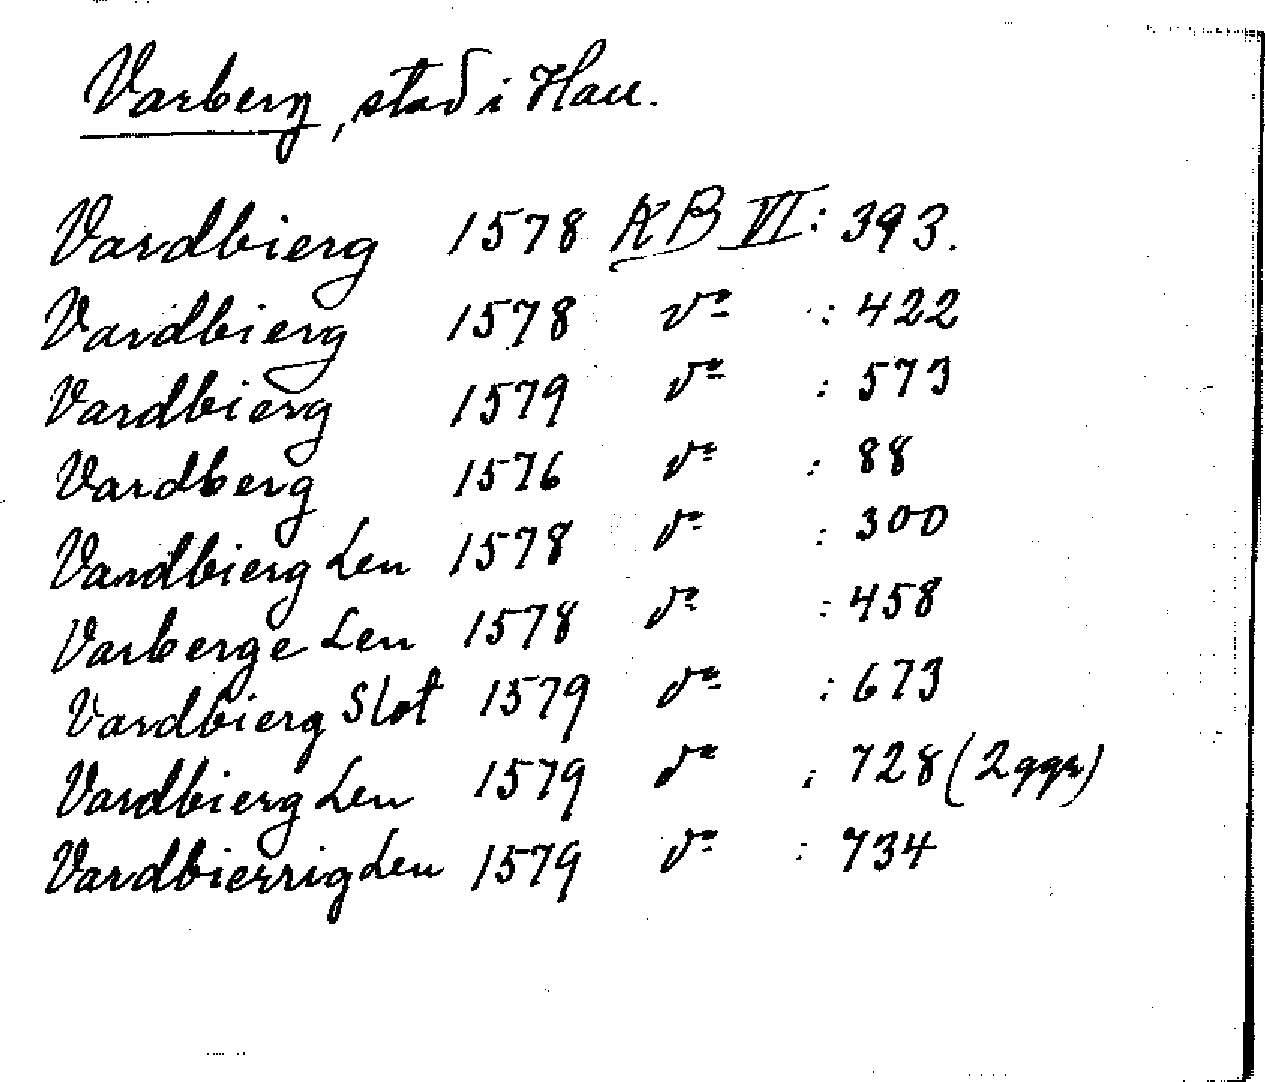 Varberg, stad i Hall.
Vardbierg 1578 KB VI: 393.
Vardbierg 1578 d:o : 422
Vardbierg 1579 d:o : 573
Vardberg 1576 d:o : 88
Vardbierg Len 1578 d:o : 300
Varberge Len 1578 d:o : 458
Vardbierg Slot 1579 d:o : 673
Vardbierg Len 1579 d:o : 728 (2 ggr)
Vardbierrig Len 1579 d:o : 734